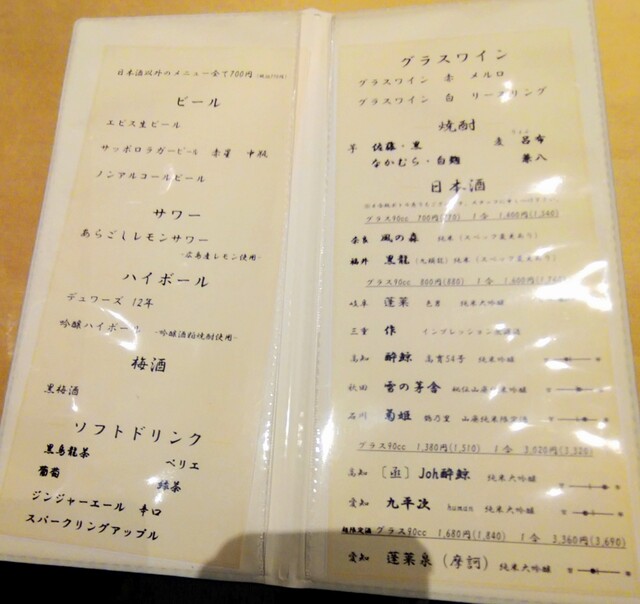 日本酒以外のメニュー全て700円
ビール
エビス生ビール
サッポロラガービール 赤星 中瓶
ノンアルコールビール
サワー
あらごしレモンサワー
-広島産レモン使用-
ハイボール
デュワーズ 12年
吟醸ハイボール -吟醸酒粕焼酎使用-
梅酒
黒梅酒
ソフトドリンク
黒烏龍茶 ペリエ
葡萄 緑茶
ジンジャーエール 辛口
スパークリングアップル
グラスワイン
グラスワイン 赤 メルロ
グラスワイン 白 リースリング
焼酎
芋 佐藤・黒 麦 呂布
なかむら・白麹 兼八
日本酒
グラス90cc 700円(770) 1合 1,400円(1,540)
奈良 風の森 純米 (スペック変更あり)
福井 黒龍 (九頭龍) 純米 (スペック変更あり)
グラス90cc 800円(880) 1合 1,600円
岐阜 蓬莱 色男 純米大吟醸
三重 作 インプレッション
高知 酔鯨 高育54号 純米吟醸
秋田 雪の茅舎 秘伝山廃 純米吟醸
石川 菊姫 鶴乃里 山廃純米
グラス90cc 1,380円(1,510) 1合 3,020円(3,320)
高知 [函] Joh酔鯨 純米大吟醸
愛知 九平次 human 純米大吟醸
超限定酒 グラス90cc 1,680円(1,840) 1合 3,360円(3,690)
愛知 蓬莱泉 (摩訶) 純米大吟醸